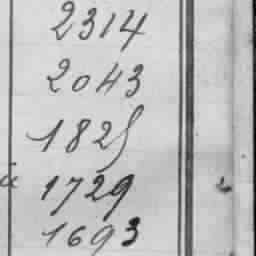 2314
2043
1825
1729
1693